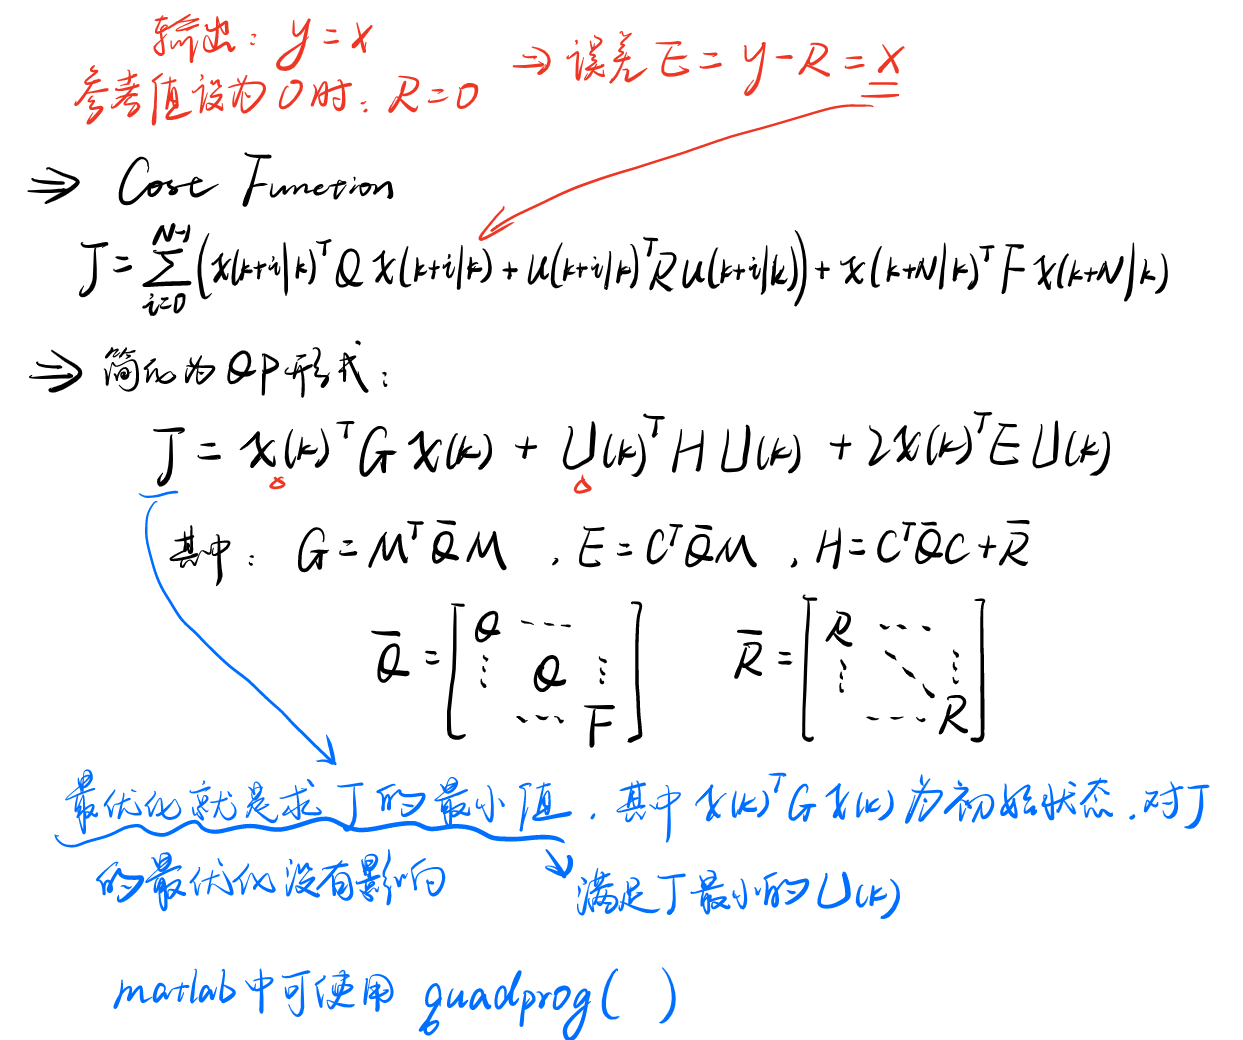 输出：y=x
参考值设为0时：R=0 ⇒ 误差 E=y-R=x
⇒ Cost Function
J=∑_{i=0}^{N-1}(x(k+i|k)^T Q x(k+i|k)+u(k+i|k)^T R u(k+i|k))+x(k+N|k)^T F x(k+N|k)
⇒ 简化为QP形式：
J=x(k)^T G x(k)+U(k)^T H U(k)+2x(k)^T E U(k)
其中：G=M^T Q̄ M ，E=C^T Q̄ M ，H=C^T Q̄ C+R̄
Q̄=[Q ⋯ ⋮ Q ⋮ ⋯ F] R̄=[R ⋯ ⋮ ⋱ ⋮ ⋯ R]
最优化就是求J的最小值，其中x(k)^T G x(k)为初始状态，对J
的最优化没有影响 满足J最小的U(k)
matlab中可使用 quadprog( )